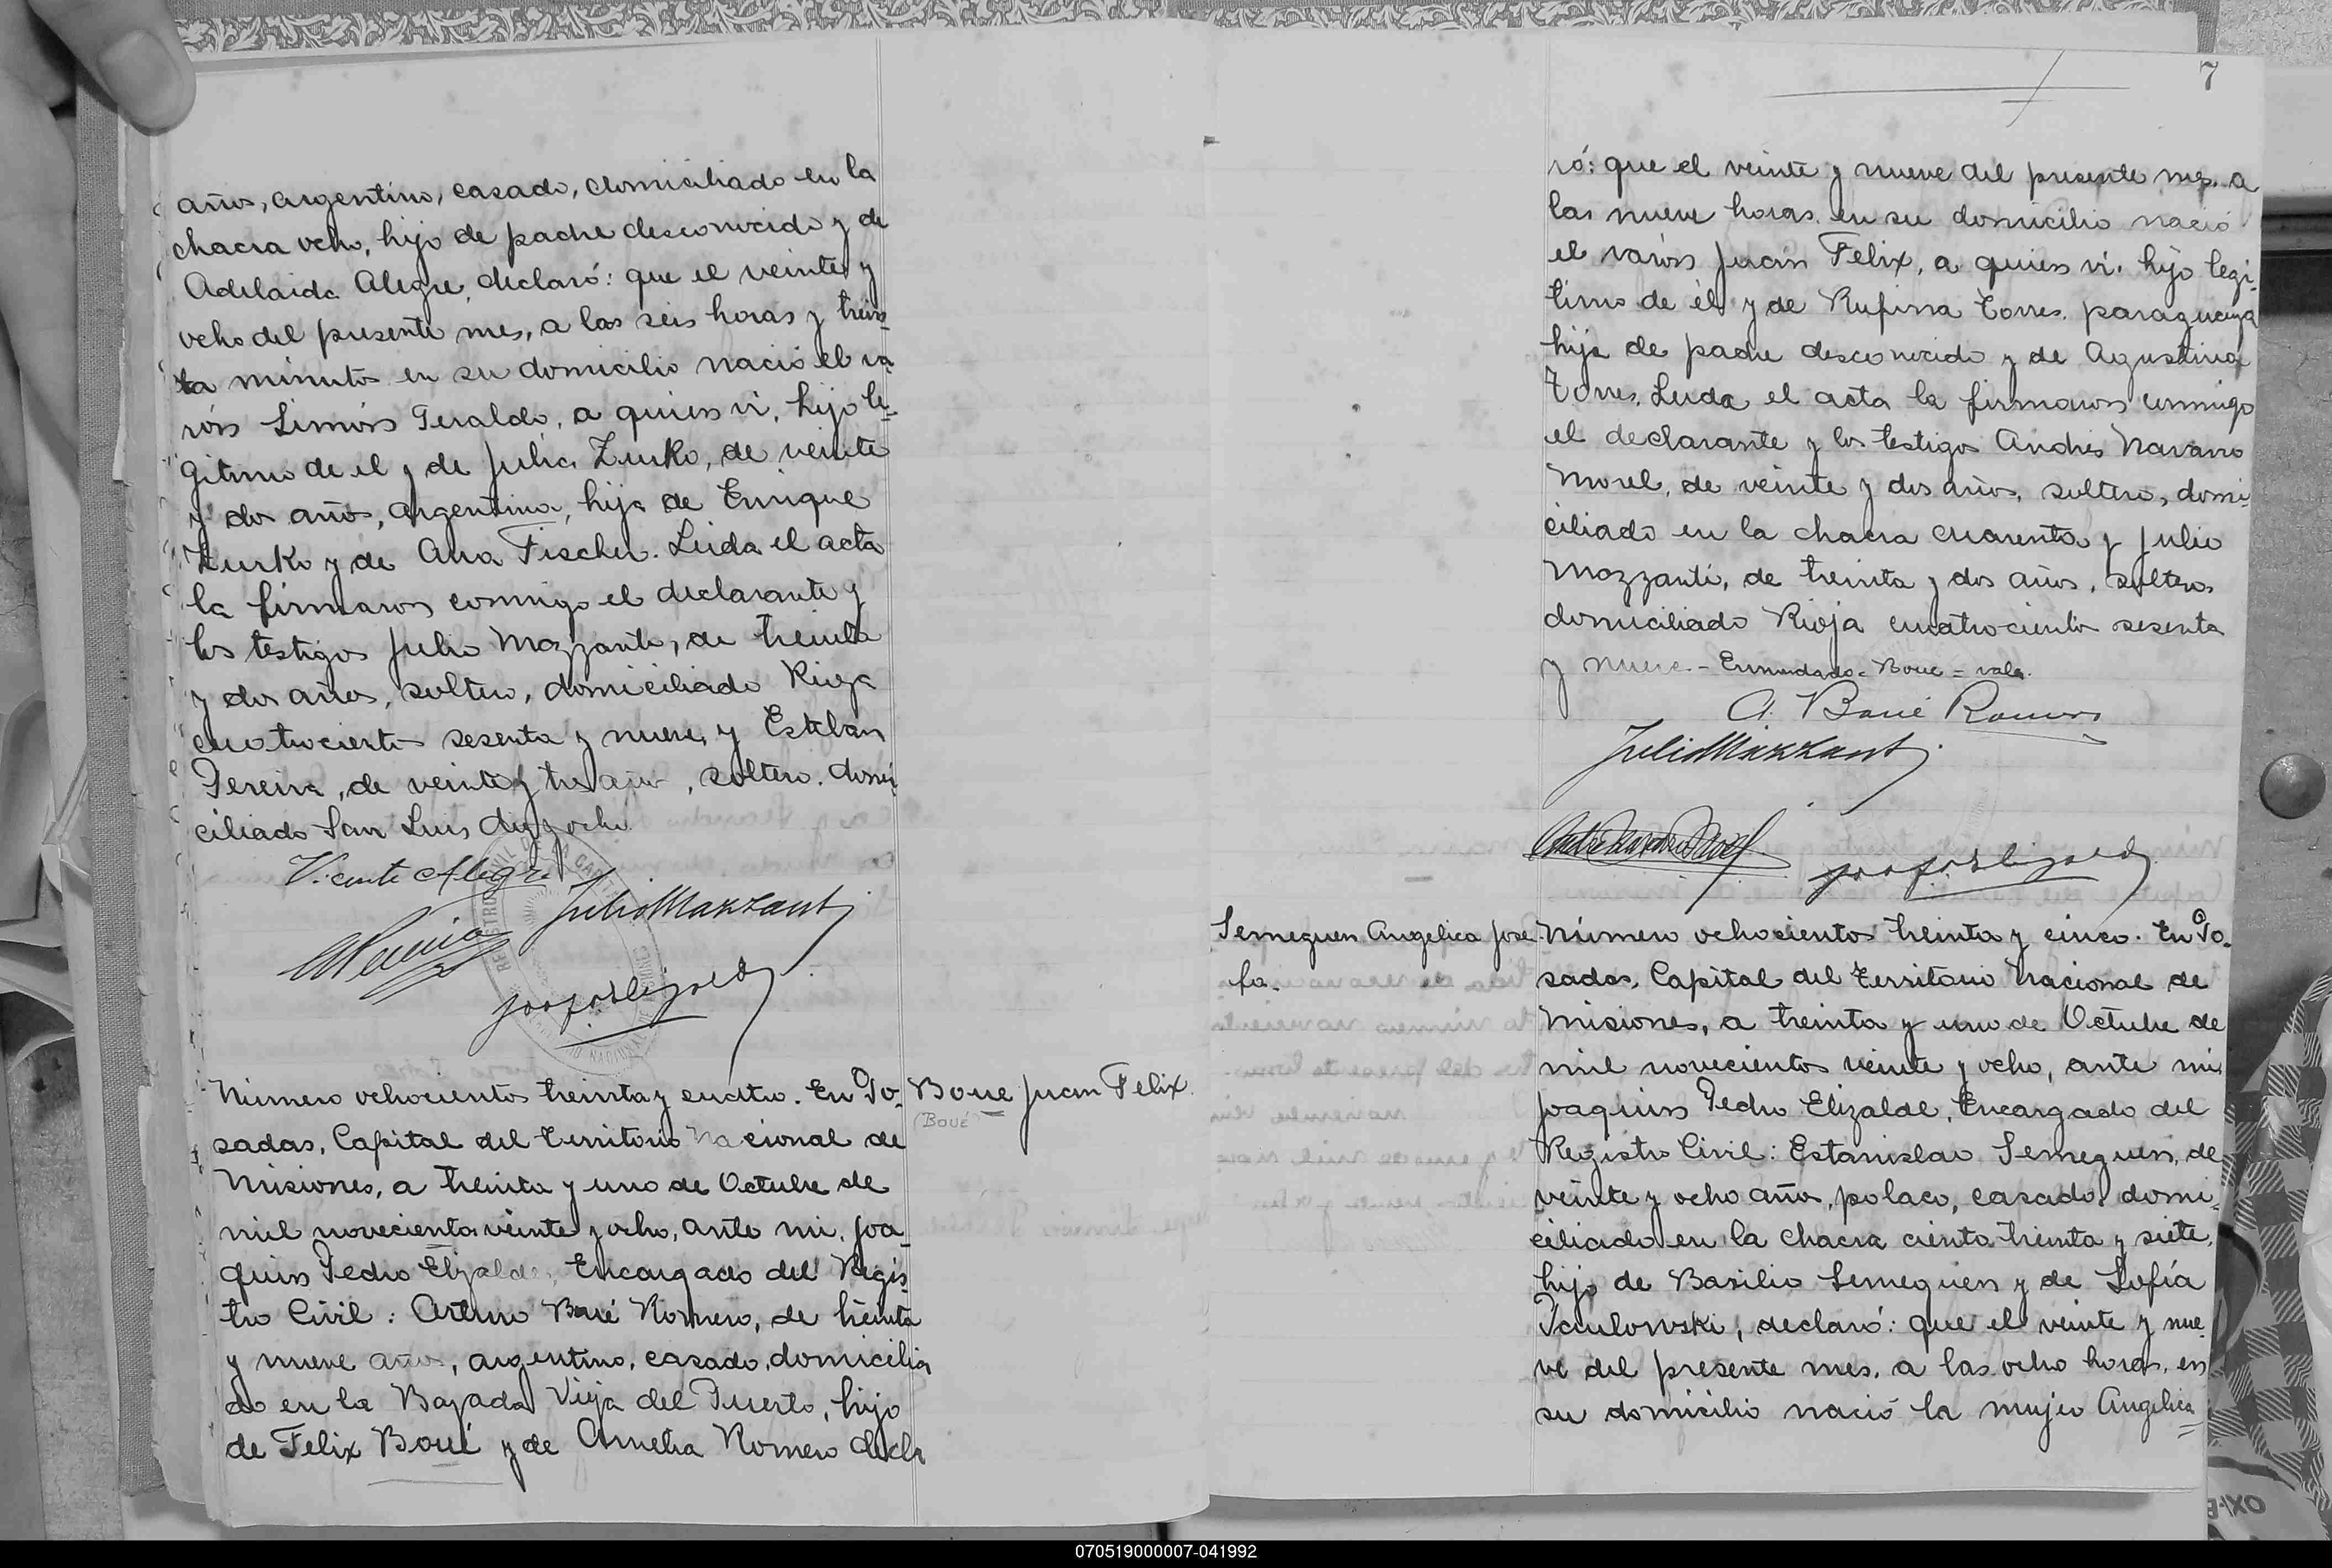 años, argentino, casado, domiciliado en la
chacra ocho, hijo de padre desconocido y de
Adelaida Alegre, declaró: que el veinte y
ocho del presente mes, a las seis horas y trein-
ta minutos en su domicilio nació el va
rón Simón Teraldo, a quien vi, hijo le-
gitimo de el y de Julia Zurko, de veinte
y dos años, argentina, hija de Enrique
Zurko y de Ana Fischer. Leida el acta
la firmaron conmigo el declarante y
los testigos Julio Mazzanti, de treinta
y dos años, soltero, domiciliado Rioja
cuatrocientos sesenta y nueve, y Esteban
Pereira, de veinte y tres años, soltero. domi
ciliado San Luis diez y ocho
Vicente Alegre
Julio Mazzanti
Número ochocientos treinta y cuatro. En Po-
sadas, Capital del Territorio Nacional de
Misiones, a treinta y uno de Octubre de
mil novecientos veinte y ocho, ante mi, Joa-
quin Pedro Elizalde, Encargado del Regis
tro Civil: Arturo Boué Romero, de treinta
y nueve años, argentino, casado, domicilia
do en la Bajada Vieja del Puerto, hijo
de Felix Boué y de Amelia Romero decla
Boue Juan Felix
(BOUÉ)
7
ró: que el veinte y nueve del presente mes. a
las nueve horas. en su domicilio nació
el varón Juan Felix, a quien vi. hijo legi-
timo de él y de Rufina Torres. paraguaya
hija de padre desconocido y de Agustina
Torres. Leida el acta la firmaron conmigo
el declarante y los testigos Andrés Navarro
Morel, de veinte y dos años, soltero, domi-
ciliado en la chacra cuarenta y Julio
Mazzanti, de treinta y dos años, soltero
domiciliado Rioja cuatrocientos sesenta
y nueve. - Enmendado = Boue = vale.
A. Boué Romero
Julio Mazzanti
Semeguen Angelica Jose
fa.
Número ochocientos treinta y cinco. En Po-
sadas, Capital del Territorio Nacional de
Misiones, a treinta y uno de Octubre de
mil novecientos veinte y ocho, ante mi,
Joaquin Pedro Elizalde, Encargado del
Registro Civil: Estanislao Semeguen, de
veinte y ocho años, polaco, casado, domi-
ciliado en la chacra ciento treinta y siete,
hijo de Basilio Semeguen y de Sofía
Paulowski, declaró: que el veinte y nue-
ve del presente mes, a las ocho horas, en
su domicilio nació la mujer Angelica=
070519000007-041992